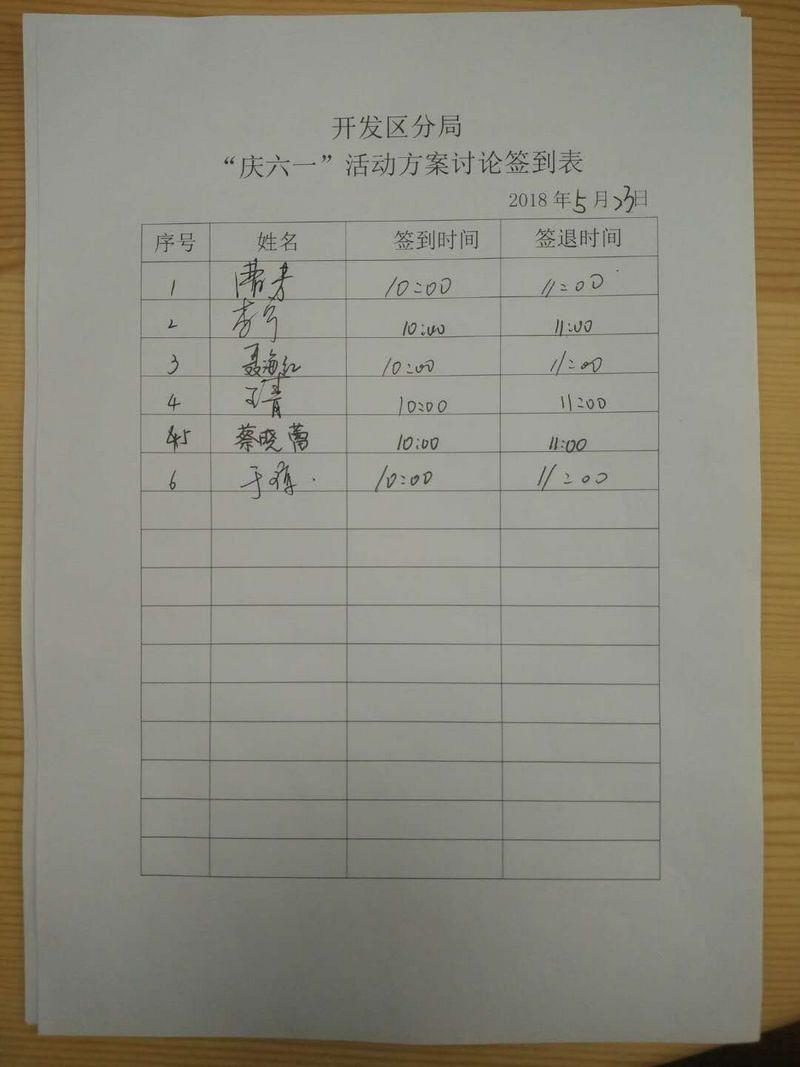 开发区分局
“庆六一”活动方案讨论签到表
2018年5月23日
序号 姓名 签到时间 签退时间
1 10:00 11:00
2 10:00 11:00
3 聂海红 10:00 11:00
4 王靖 10:00 11:00
5 蔡晓蕾 10:00 11:00
6 于 10:00 11:00